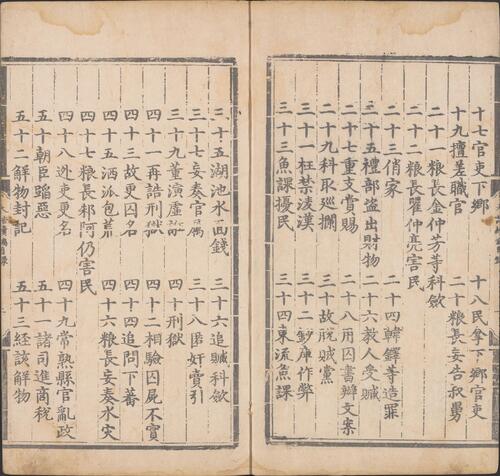 十七官吏下鄉　十八民拿下鄉官吏
十九擅差職官　二十糧長妄告叔舅
二十一糧長金仲芳等科斂
二十二糧長瞿仲亮害民
二十三俏家　二十四韓鐸等造罪
二十五禮部盜出財物　二十六教人受贓
二十七重支賞賜　二十八用囚書辦文案
二十九科取巡攔　三十故脫賊黨
三十一枉禁凌漢　三十二鈔庫作弊
三十三魚課擾民　三十四東流魚課
三十五湖池水面錢　三十六追贓科斂
三十七妄奏官属　三十八匿奸賣引
三十九董演虛誑　四十刑獄
四十一再誥刑獄　四十二相驗囚屍不實
四十三故更囚名　四十四追問下蕃
四十五洒派包荒　四十六糧長妄奏水灾
四十七糧長邾阿仍害民
四十八逃吏更名　四十九常熟縣官亂政
五十朝臣蹈惡　五十一諸司進商稅
五十二解物封記　五十三經該解物